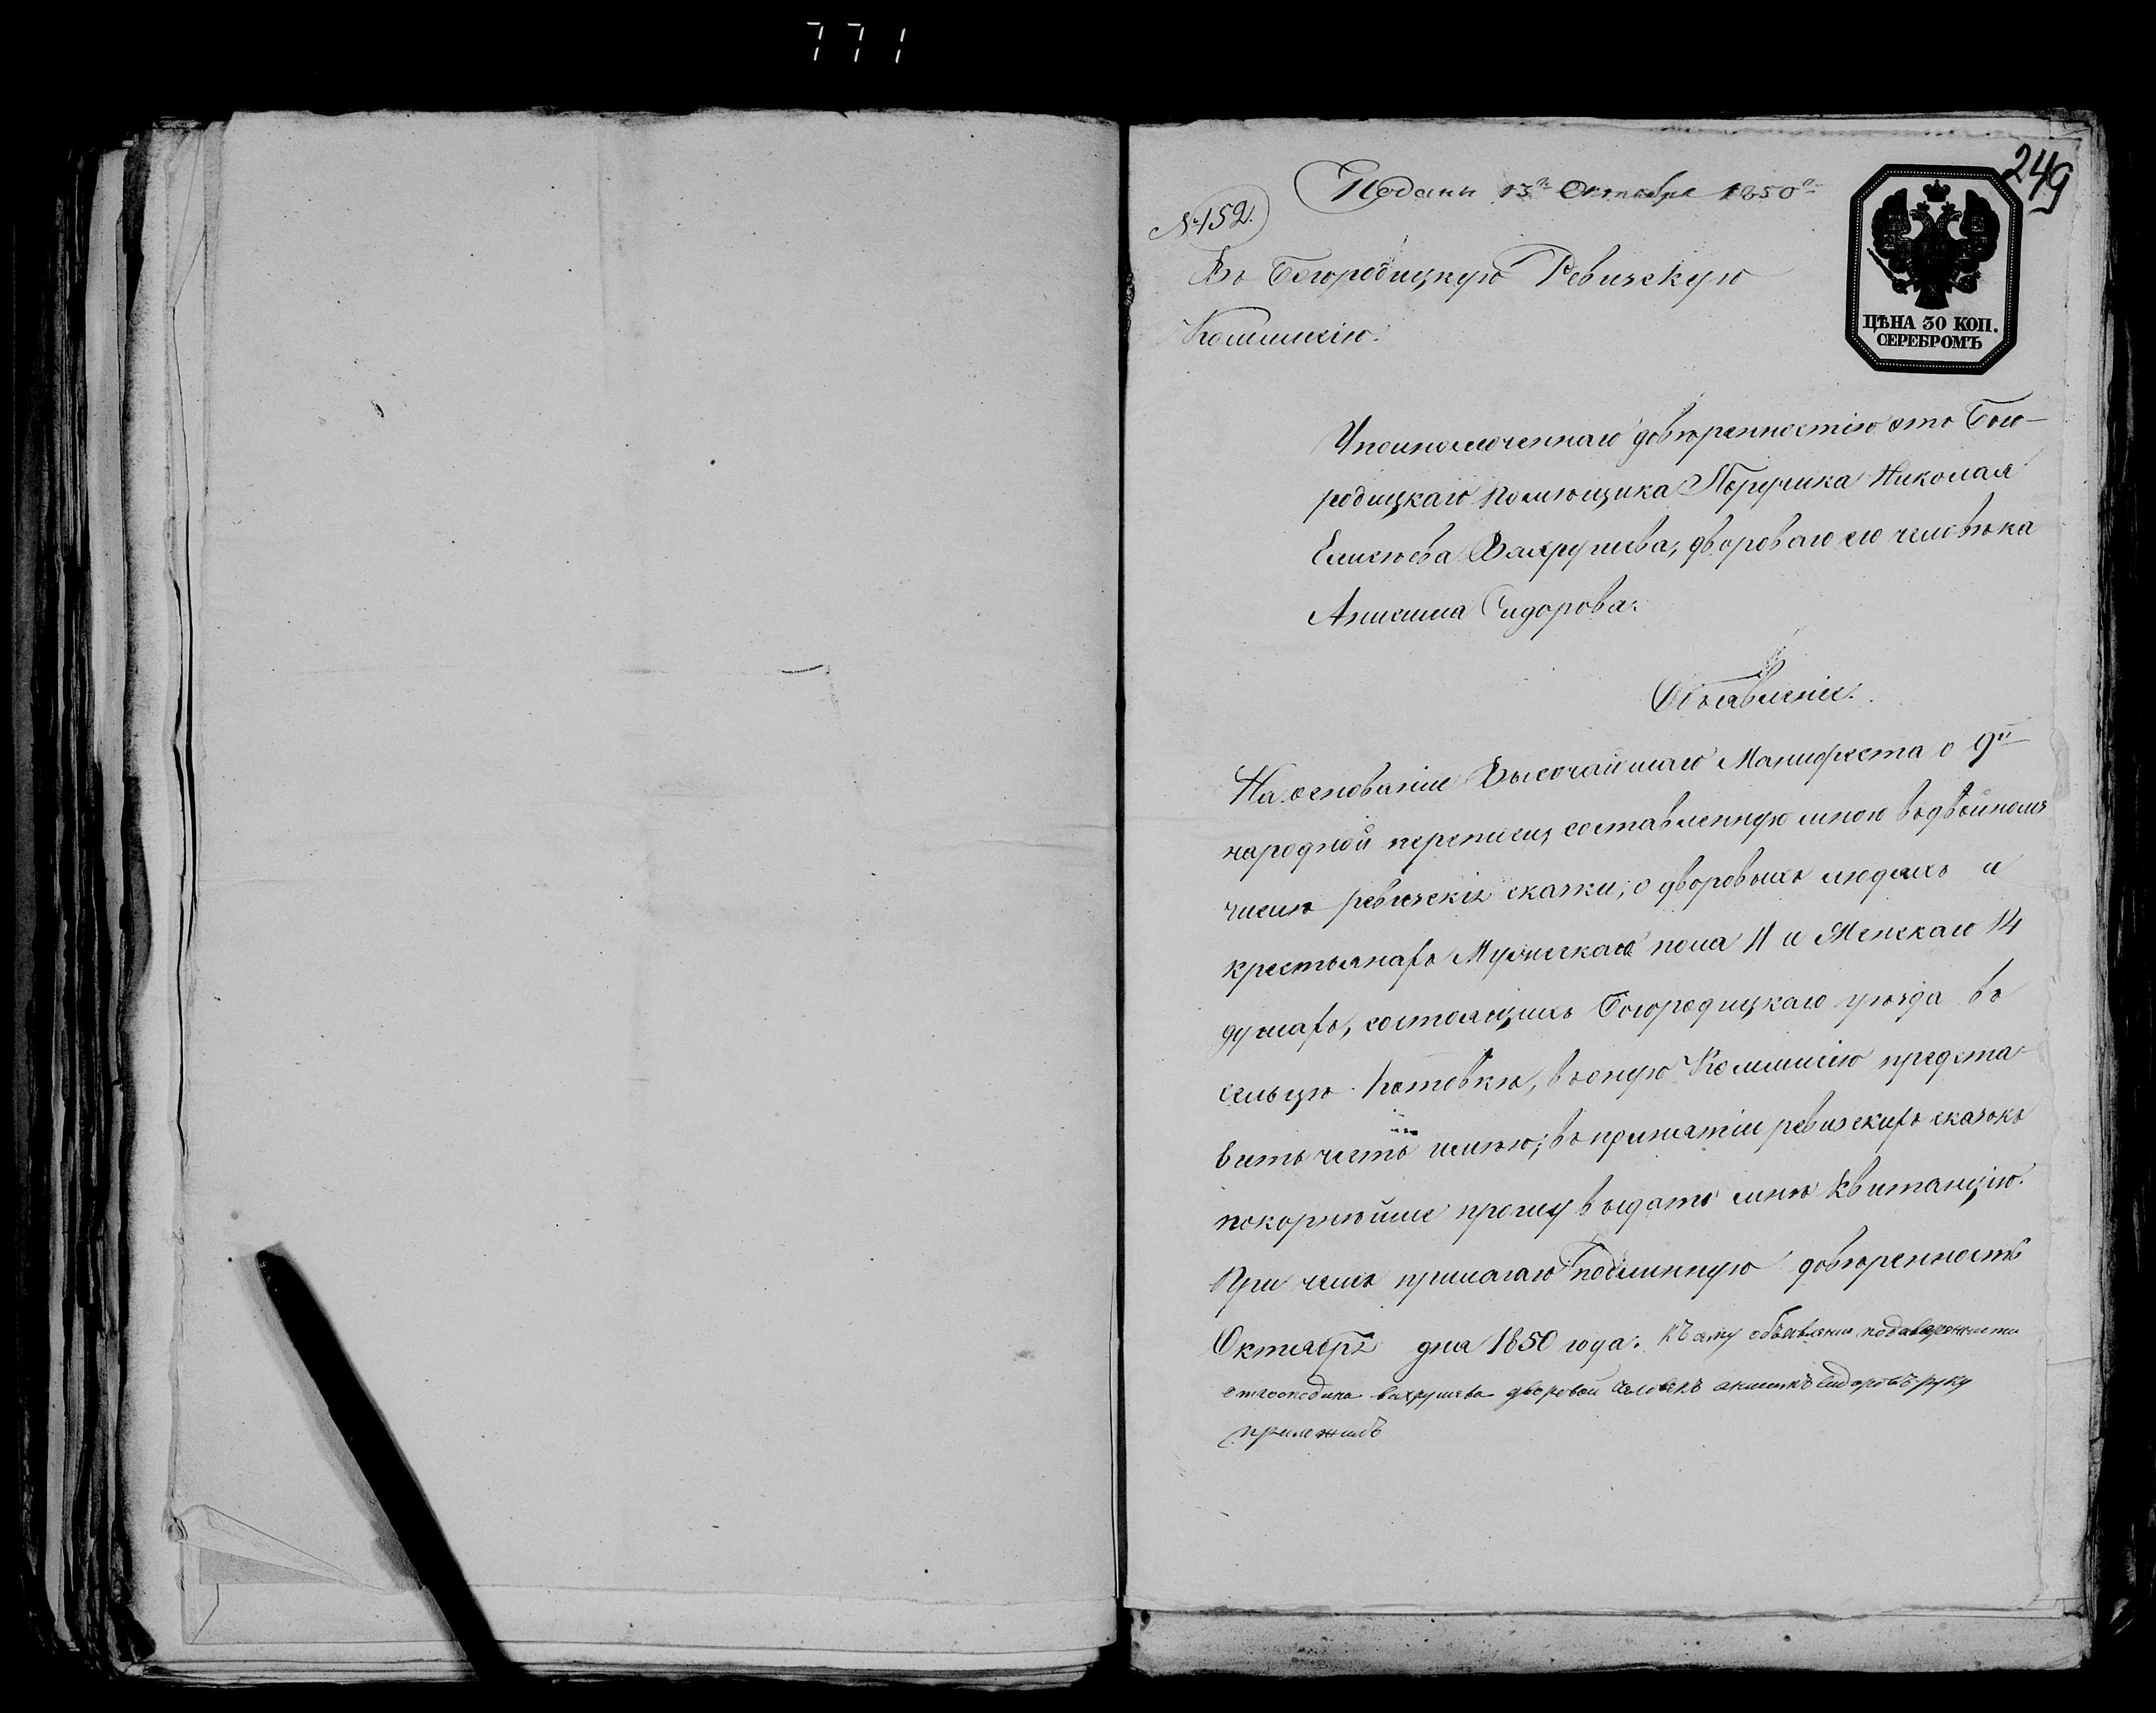 771
249
Подано 13го Октября 1850го
№ 152.
Въ Богородицкую Ревизскую
Коммисію.
ЦѢНА 30 КОП.
СЕРЕБРОМЪ
Уполномоченнаго довѣренностію отъ Бого-
родицкаго помѣщика Поручика Николая
Елисѣева Вахрушева, дворового его человѣка
Анисима Сидорова.
Объявленіе.
На основаніи Высочайшаго Манифеста о 9й
народной переписи, составленную мною въ двойномъ
числѣ ревизскія сказки, о дворовыхъ людяхъ и
крестьянахъ Мужескаго пола 11 и Женскаго 14
душахъ, состоящихъ Богородицкаго уѣзда въ
сельцѣ, въ оную Коммисію предста-
вить честь имѣю; въ принятіи ревизскихъ сказокъ
покорнѣйше прошу выдать мнѣ квитанцію.
При чемъ прилагаю подлинную довѣренность
Октября дня 1850 года. Къ сему объявленію по даверенности
отгосподина вахрушева дворовой человекъ анисимъ Сидоровъ руку
приложилъ